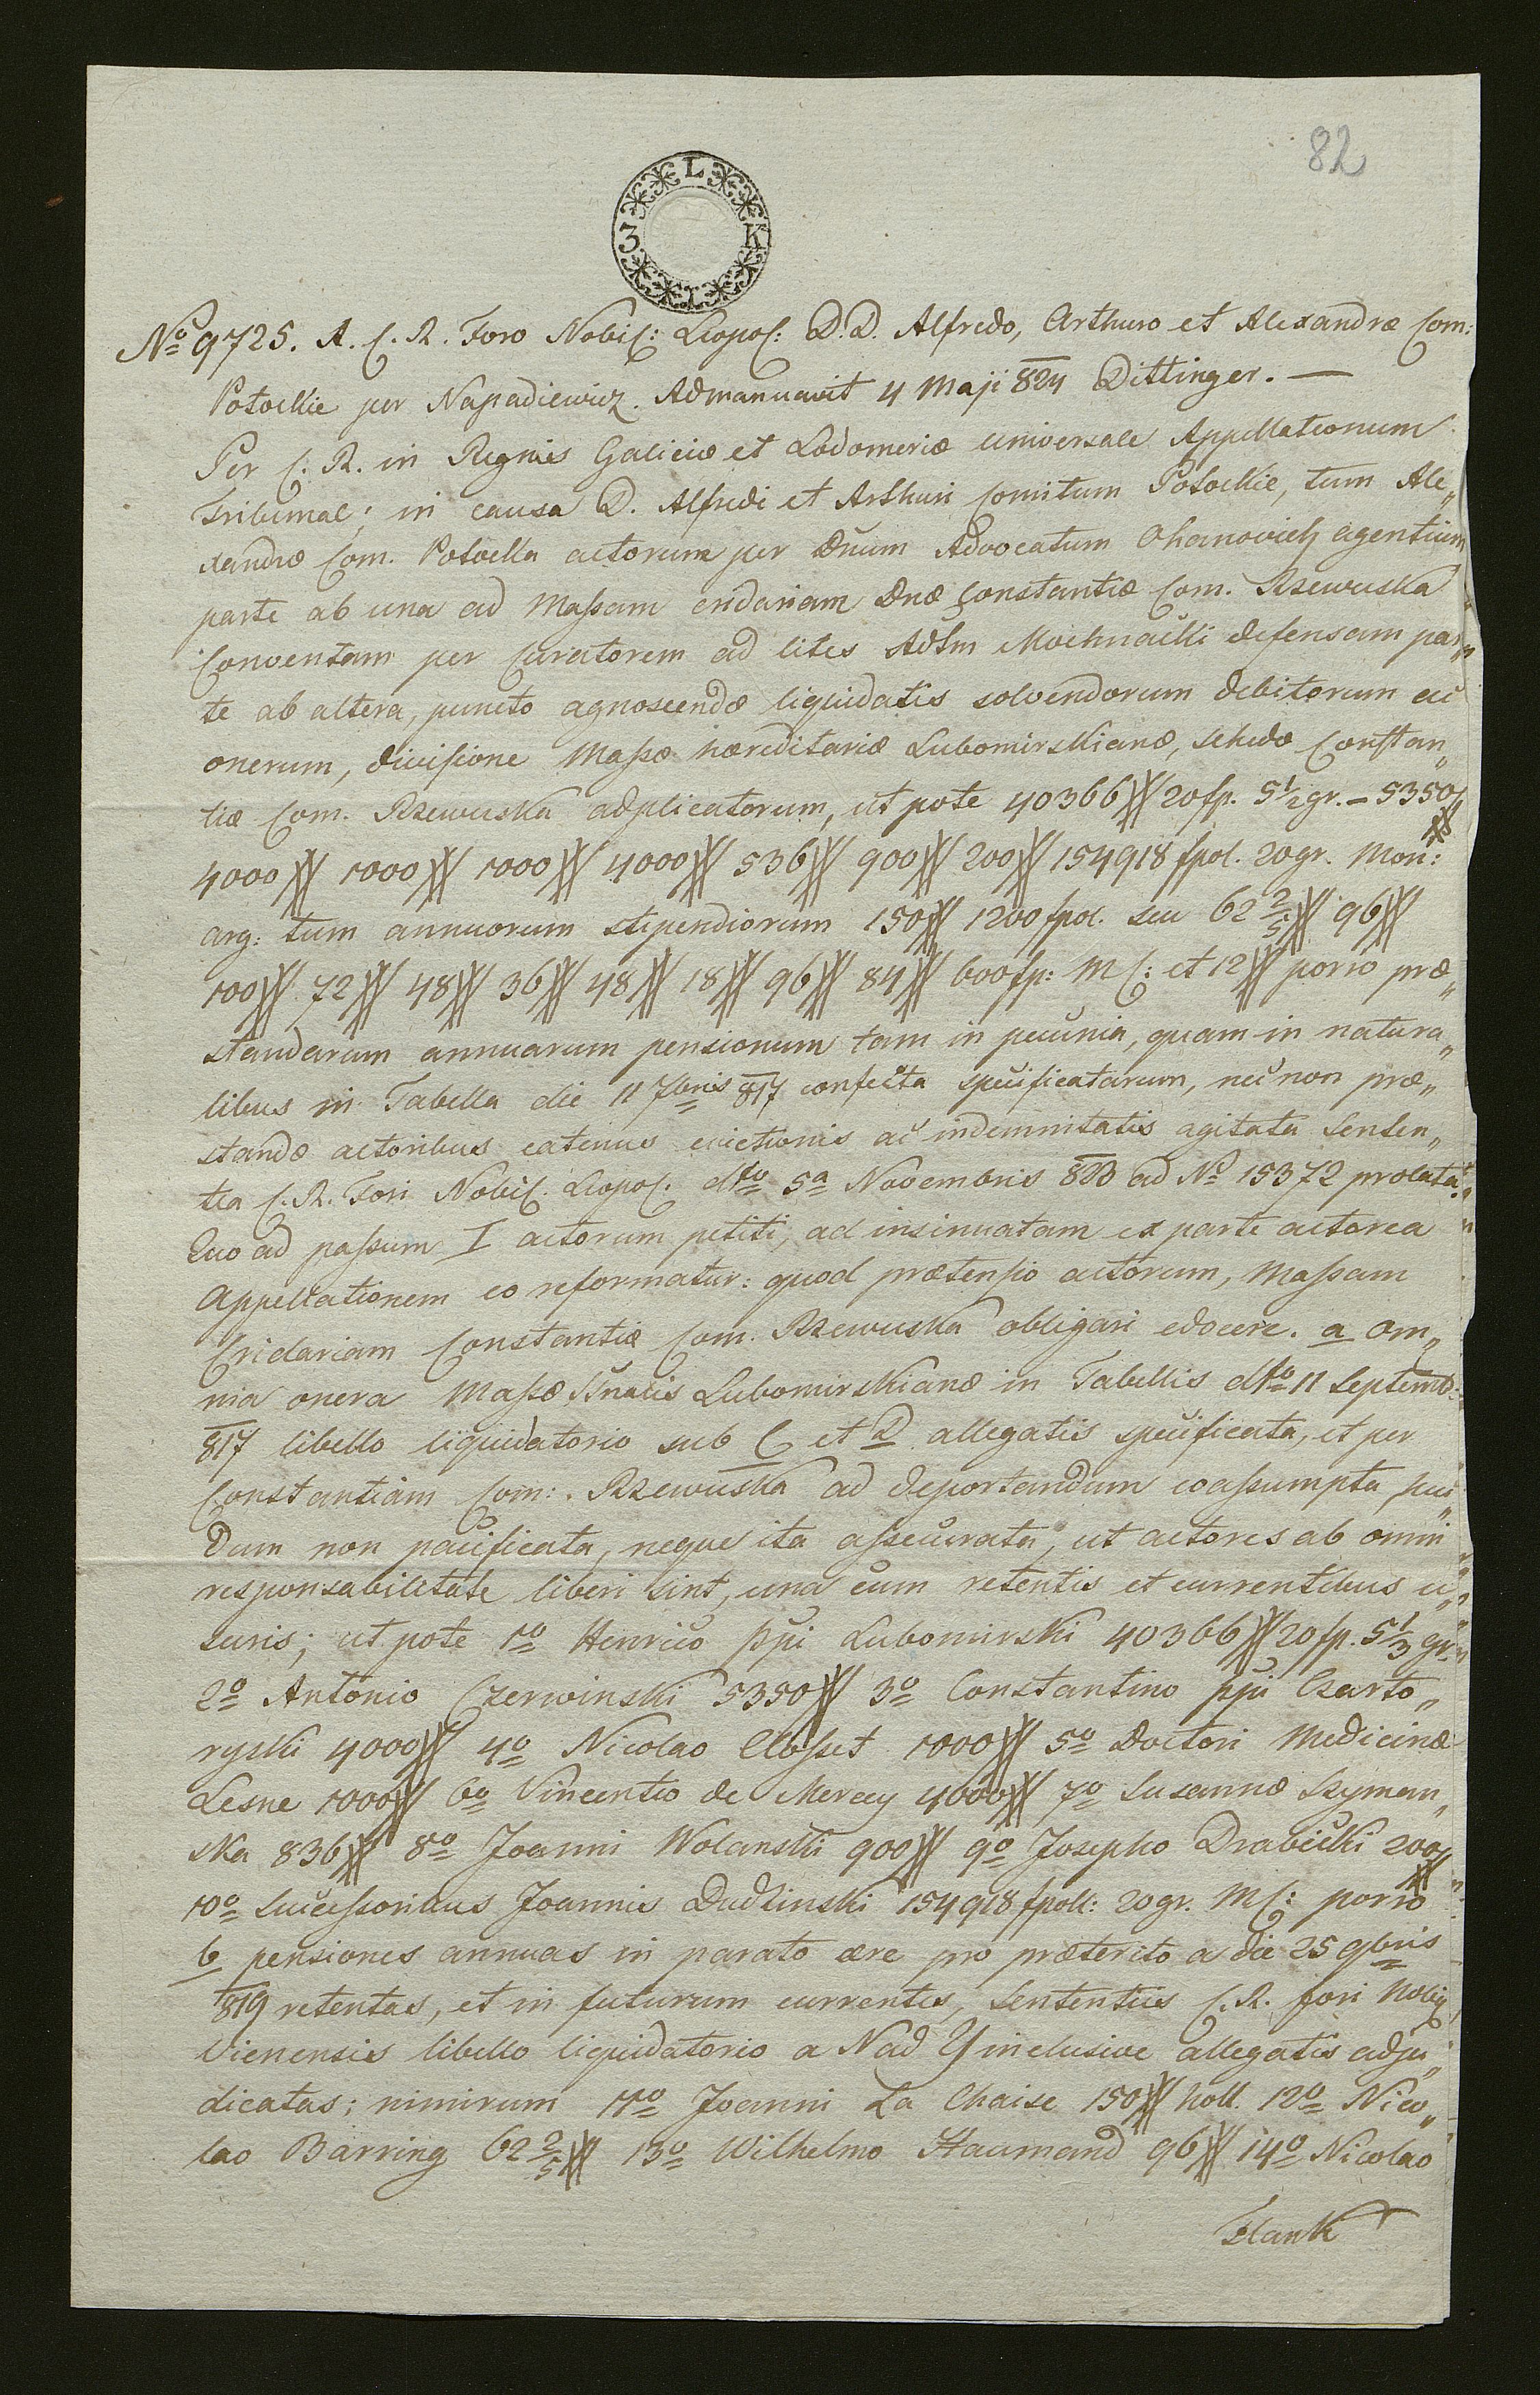 82
L
3 K
No 9725. A. C. R. Foro Nobil: Leopol: D.D. Alfredo, Arthuro et Alexandræ Com:
Potockie per Napadiewicz. Admanuavit 4 Maji 824 Dittinger. —
Per C. R. in Regnis Galiciæ et Lodomeriæ universale Appellationum
Tribunal; in causa D. Alfredi et Arthuri Comitum Potockie, tum Ale„
xandræ Com. Potocka actorum per Dnum Advocatum Ohanovich agentium
parte ab una ad Massam cridariam Dnæ Constantiæ Com. Rzewuska
Conventam per Curatorem ad lites Adtm Mochnacki defensam par„
te ab altera, puncto agnoscendæ liquidatis solvendorum debitorum ac
onerum, divisione Massæ hæreditariæ Lubomirskianæ, schedæ Constan„
tiæ Com. Rzewuska adplicatorum, ut pote 40366 # 20 fp. 5 1/2 gr. – 5350 #
4000 # 1000 # 1000 # 4000 # 536 # 900 # 200 # 154918 fpol. 20 gr. Mon:
arg: tum annuorum stipendiorum 150 # 1200 fpol. seu 62 2/5 # 96 #
100 # 72 # 48 # 36 # 48 # 18 # 96 # 84 # 600 fp: M C: et 12 # porro præ„
standarum annuarum pensionum tam in pecunia, quam in natura„
libus in Tabella die 11 7bris 817 confecta specificatarum, nec non præ„
standæ actoribus eatenus evictionis ac indemnitatis agitata Senten„
tia C. R. Fori Nobil. Leopol. dto 5a Novembris 823 ad No 15372 prolata.
Quo ad passum I actorum petiti, ad insinuatam ex parte actorea
Appellationem eo reformatur: quod prætensio actorum, Massam
Cridariam Constantiæ Com. Rzewuska obligari edocere. a om„
nia onera Massæ Lubomirskianæ in Tabellis dto 11 Septemb:
817 libello liquidatorio sub C et D allegatis specificata, et per
Constantiam Com: Rzewuska ad deportandum coassumpta, nec„
dum non pacificata, neque ita assecurata, ut actores ab omni
responsabilitate liberi sint, una cum retentis et currentibus u„
suris; ut pote 1o Henrico ppi Lubomirski 40366 # 20 fp. 5 1/3 gr.
2o Antonio Czerwinski 5350 # 3o Constantino ppi Czarto„
ryski 4000 # 4o Nicolao Closset 1000 # 5o Doctori Medicinæ
Lesne 1000 # 6o Vincentio de Mercey 4000 # 7o Susannæ Szyman„
ska 836 # 8o Joanni Wolanski 900 # 9o Josepho Drabicki 200 #
10o Successoribus Joannis Dudzinski 154918 fpoll: 20 gr. M C: porro
b pensiones annuas in parato ære pro præterito a die 25 9bris
819 retentas, et in futurum currentes, Sententiis C. R. fori Nobil
Vienensis libello liquidatorio a N ad Y inclusive allegatis adju„
dicatas; nimirum 11o Joanni La Chaise 150 # holl. 12o Nico„
lao Barring 62 2/5 # 13o Wilhelmo Haumand 96 # 14o Nicolao
Flank